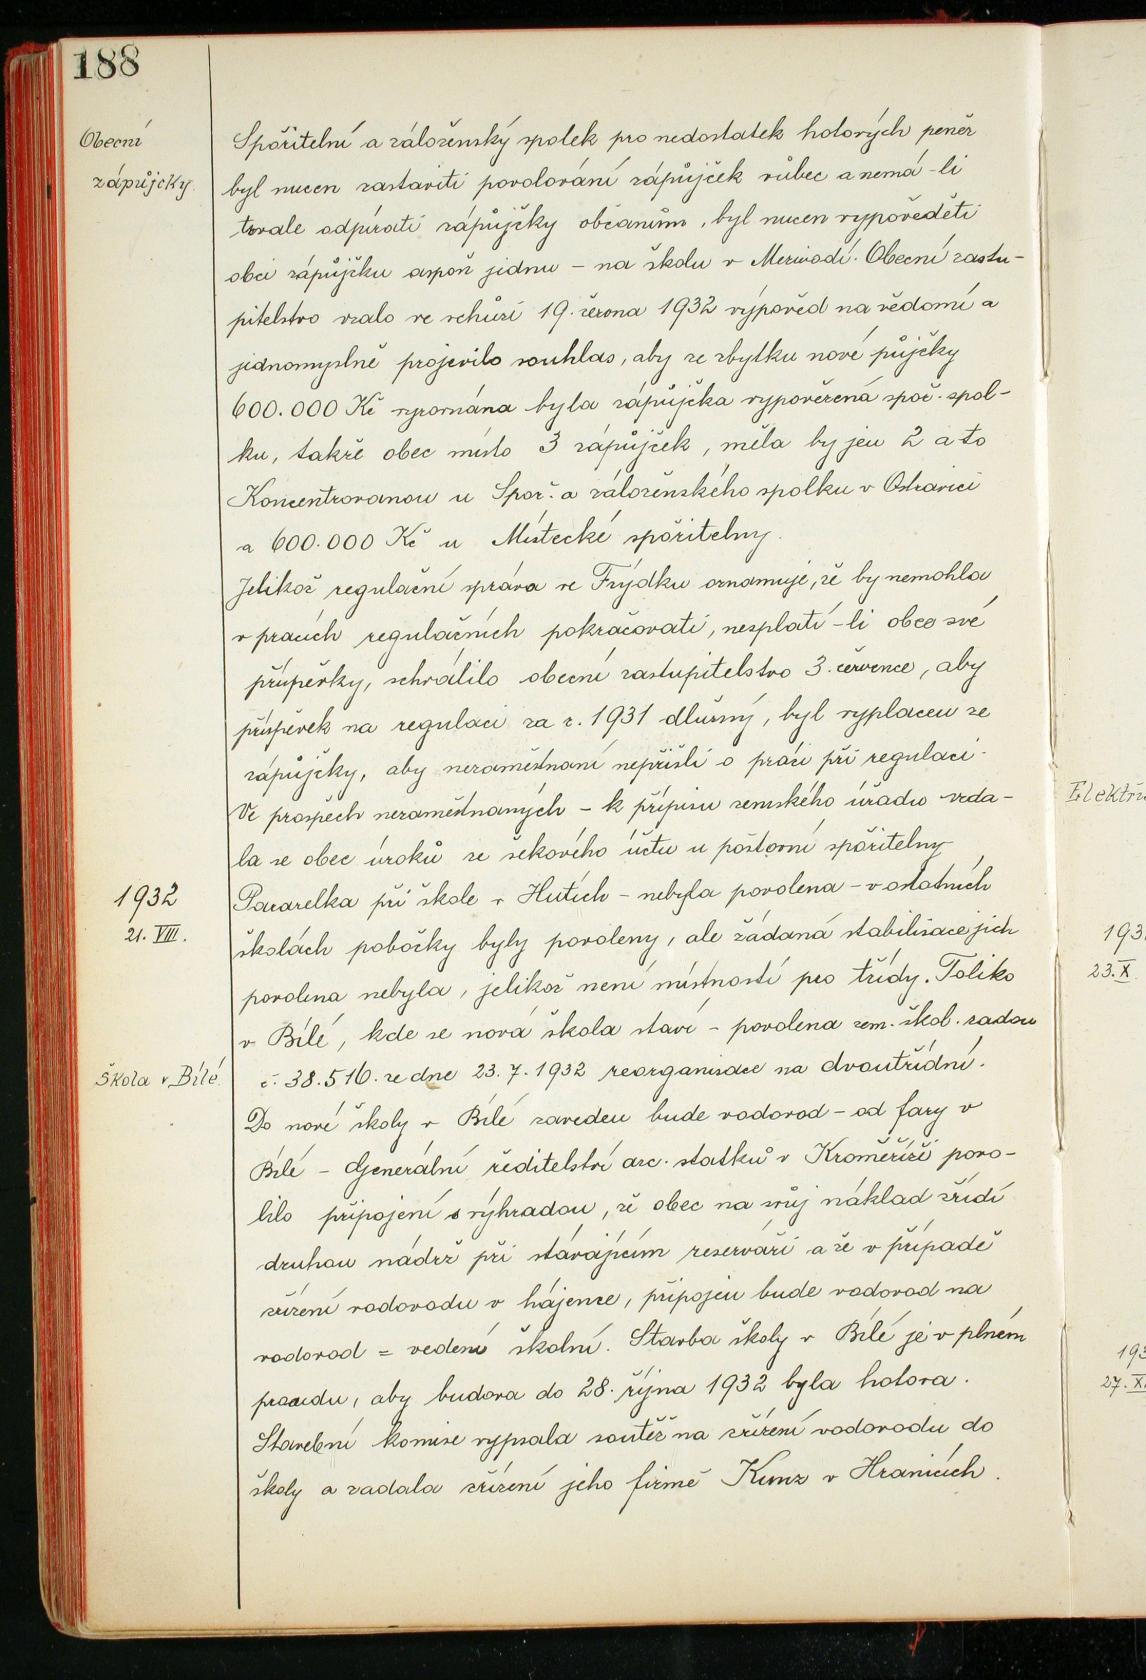 188
Obecní
zápůjčky.
Spořitelní a záloženský spolek pro nedostatek hotových peněz
byl nucen zastaviti povolování zápůjček vůbec a nemá-li
trvale odpírati zápůjčky občanům, byl nucen vypověděti
obci zápůjčku aspoň jednu – na školu v Mezivodí. Obecní zastu-
pitelstvo vzalo ve schůzi 19. června 1932 výpověď na vědomí a
jednomyslně projevilo souhlas, aby ze zbytku nové půjčky
600.000 Kč vyrovnána byla zápůjčka vypovězená spoř. spol-
ku, takže obec místo 3 zápůjček, měla by jen 2 a to
Koncentrovanou u Spoř. a záloženského spolku v Ostravici
a 600.000 Kč u Místecké spořitelny.
Jelikož regulační správa ve Frýdku oznamuje, že by nemohla
v pracích regulačních pokračovati, nesplatí-li obec své
příspěvky, schválilo obecní zastupitelstvo 3. července, aby
příspěvek na regulaci za r. 1931 dlužný, byl vyplacen ze
zápůjčky, aby nezaměstnaní nepřišli o práci při regulaci.
Ve prospěch nezaměstnaných – k přípisu zemského úřadu vzda-
la se obec úroků ze šekového účtu u poštovní spořitelny
1932
21. VIII.
při škole v Hutích – nebyla povolena – v ostatních
školách pobočky byly povoleny, ale žádaná stabilisace jich
povolena nebyla, jelikož není místností pro třídy. Toliko
v Bílé, kde se nová škola staví – povolena zem. škol. radou
Škola v Bílé
č. 38.516. ze dne 23.7.1932 reorganisace na dvoutřídní.
Do nové školy v Bílé zaveden bude vodovod – od fary v
Bílé – Generální ředitelství arc. statků v Kroměříži povo-
lilo připojení s výhradou, že obec na svůj náklad zřídí
druhou nádrž při stávajícím reserváři a že v případě
zřízení vodovodu v hájence, připojen bude vodovod na
vodovod = vedení školní. Starba školy v Bílé je v plném
proudu, aby budova do 28. října 1932 byla hotova.
Stavební komise vypsala soutěž na zřízení vodovodu do
školy a zadala zřízení jeho firmě Kunz v Hranicích.
Elektři
193
23. X
193
27. X